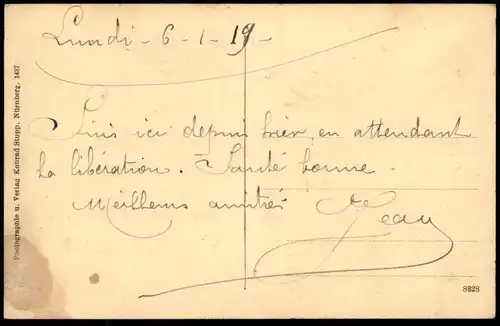 Lundi - 6 - 1 - 19 -
Suis ici depuis hier, en attendant
la libération. - Santé bonne -
Meilleures amitiés
Jean
Photographie u. Verlag Konrad Stupp, Nürnberg. 1487
8628